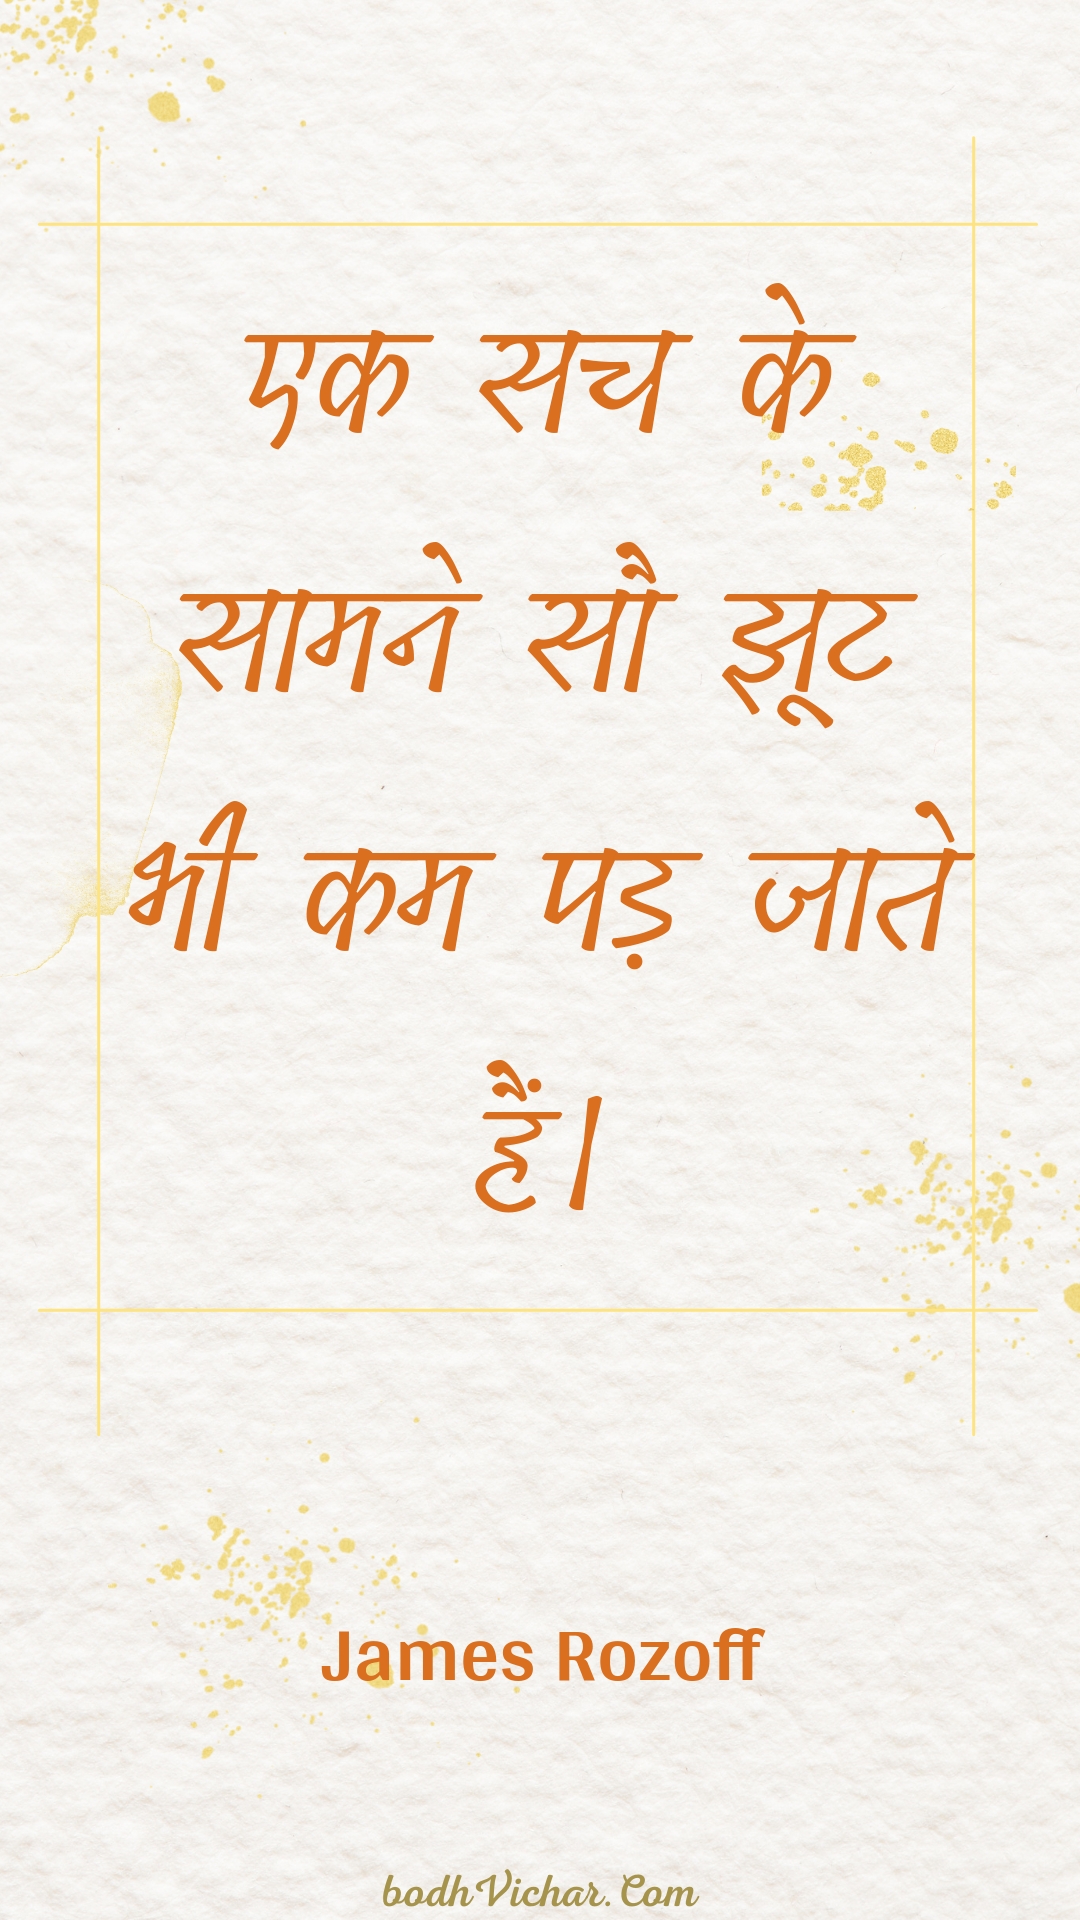 एक सच के
सामने सौ झूट
भी कम पड़ जाते
हैं।
James Rozoff
bodhVichar.Com